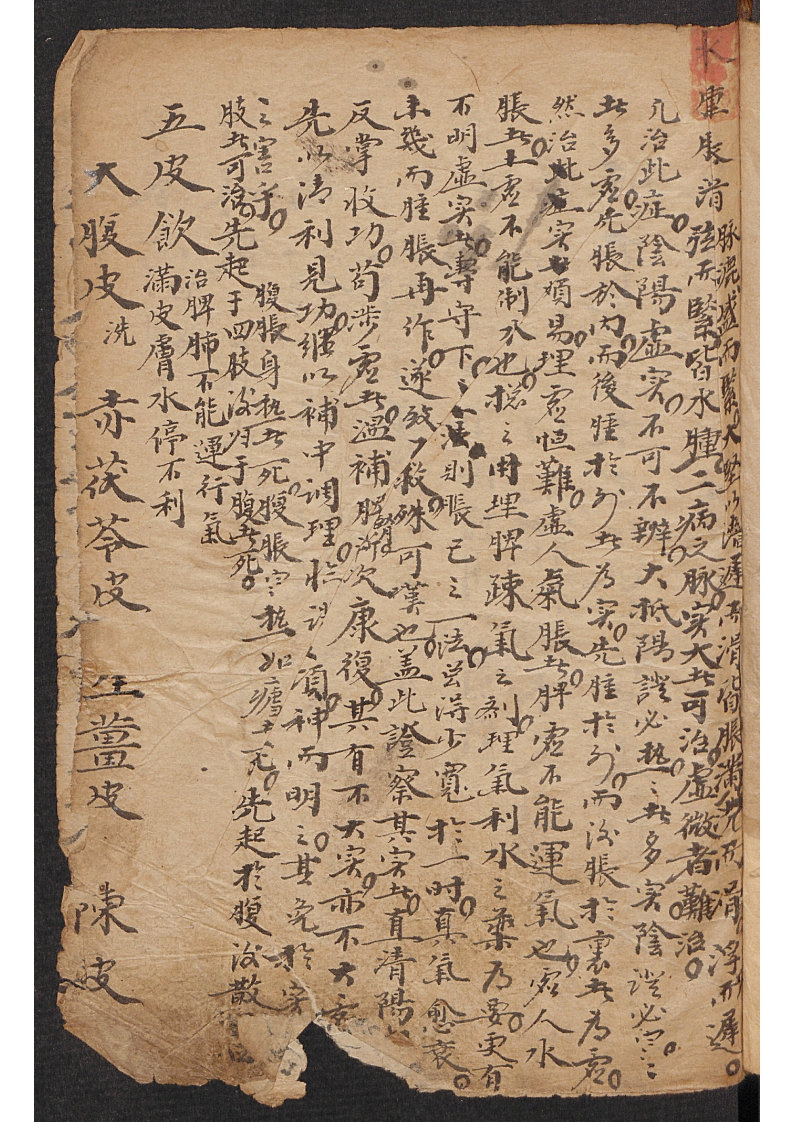 水蠱脹消 脉洪盛而緊大堅以澁遲而滑皆脹滿 而滑浮而遲
弦而緊皆水腫二病之脉实大者可治虛微者難治
凡治此症陰陽虛实不可不辨大抵陽證必熱〻者多实陰證必寒〻
者多虚先脹於内而後腫於外者為实先腫於外而後脹於裏者為虚
然治此症实者頗易理虚恒難虛人氣脹者脾虚不能運氣也虚人水
脹者土虚不能制水也 之用理脾疎氣之剤理氣利水之藥为要更有
不明虚实者專守下之之法則脹已之一法 得少寬於一时真氣愈衰
未幾而腫脹再作遂致 救殊可嘆也盖此證察其实者直清陽
反掌收功苟涉虚者温補脾腎漸次康復其有不大实亦不大虚
先以清利見功継以補中調理 神而明之其免於害
之害乎 腹脹身熱者死腹脹寒熱如瘧者死 先起於腹後散
肢者可治先起于四肢後归于腹者死
五皮飲 治脾肺不能運行氣
滿皮膚水停不利
大腹皮 洗 赤茯苓皮 生薑皮 陳皮